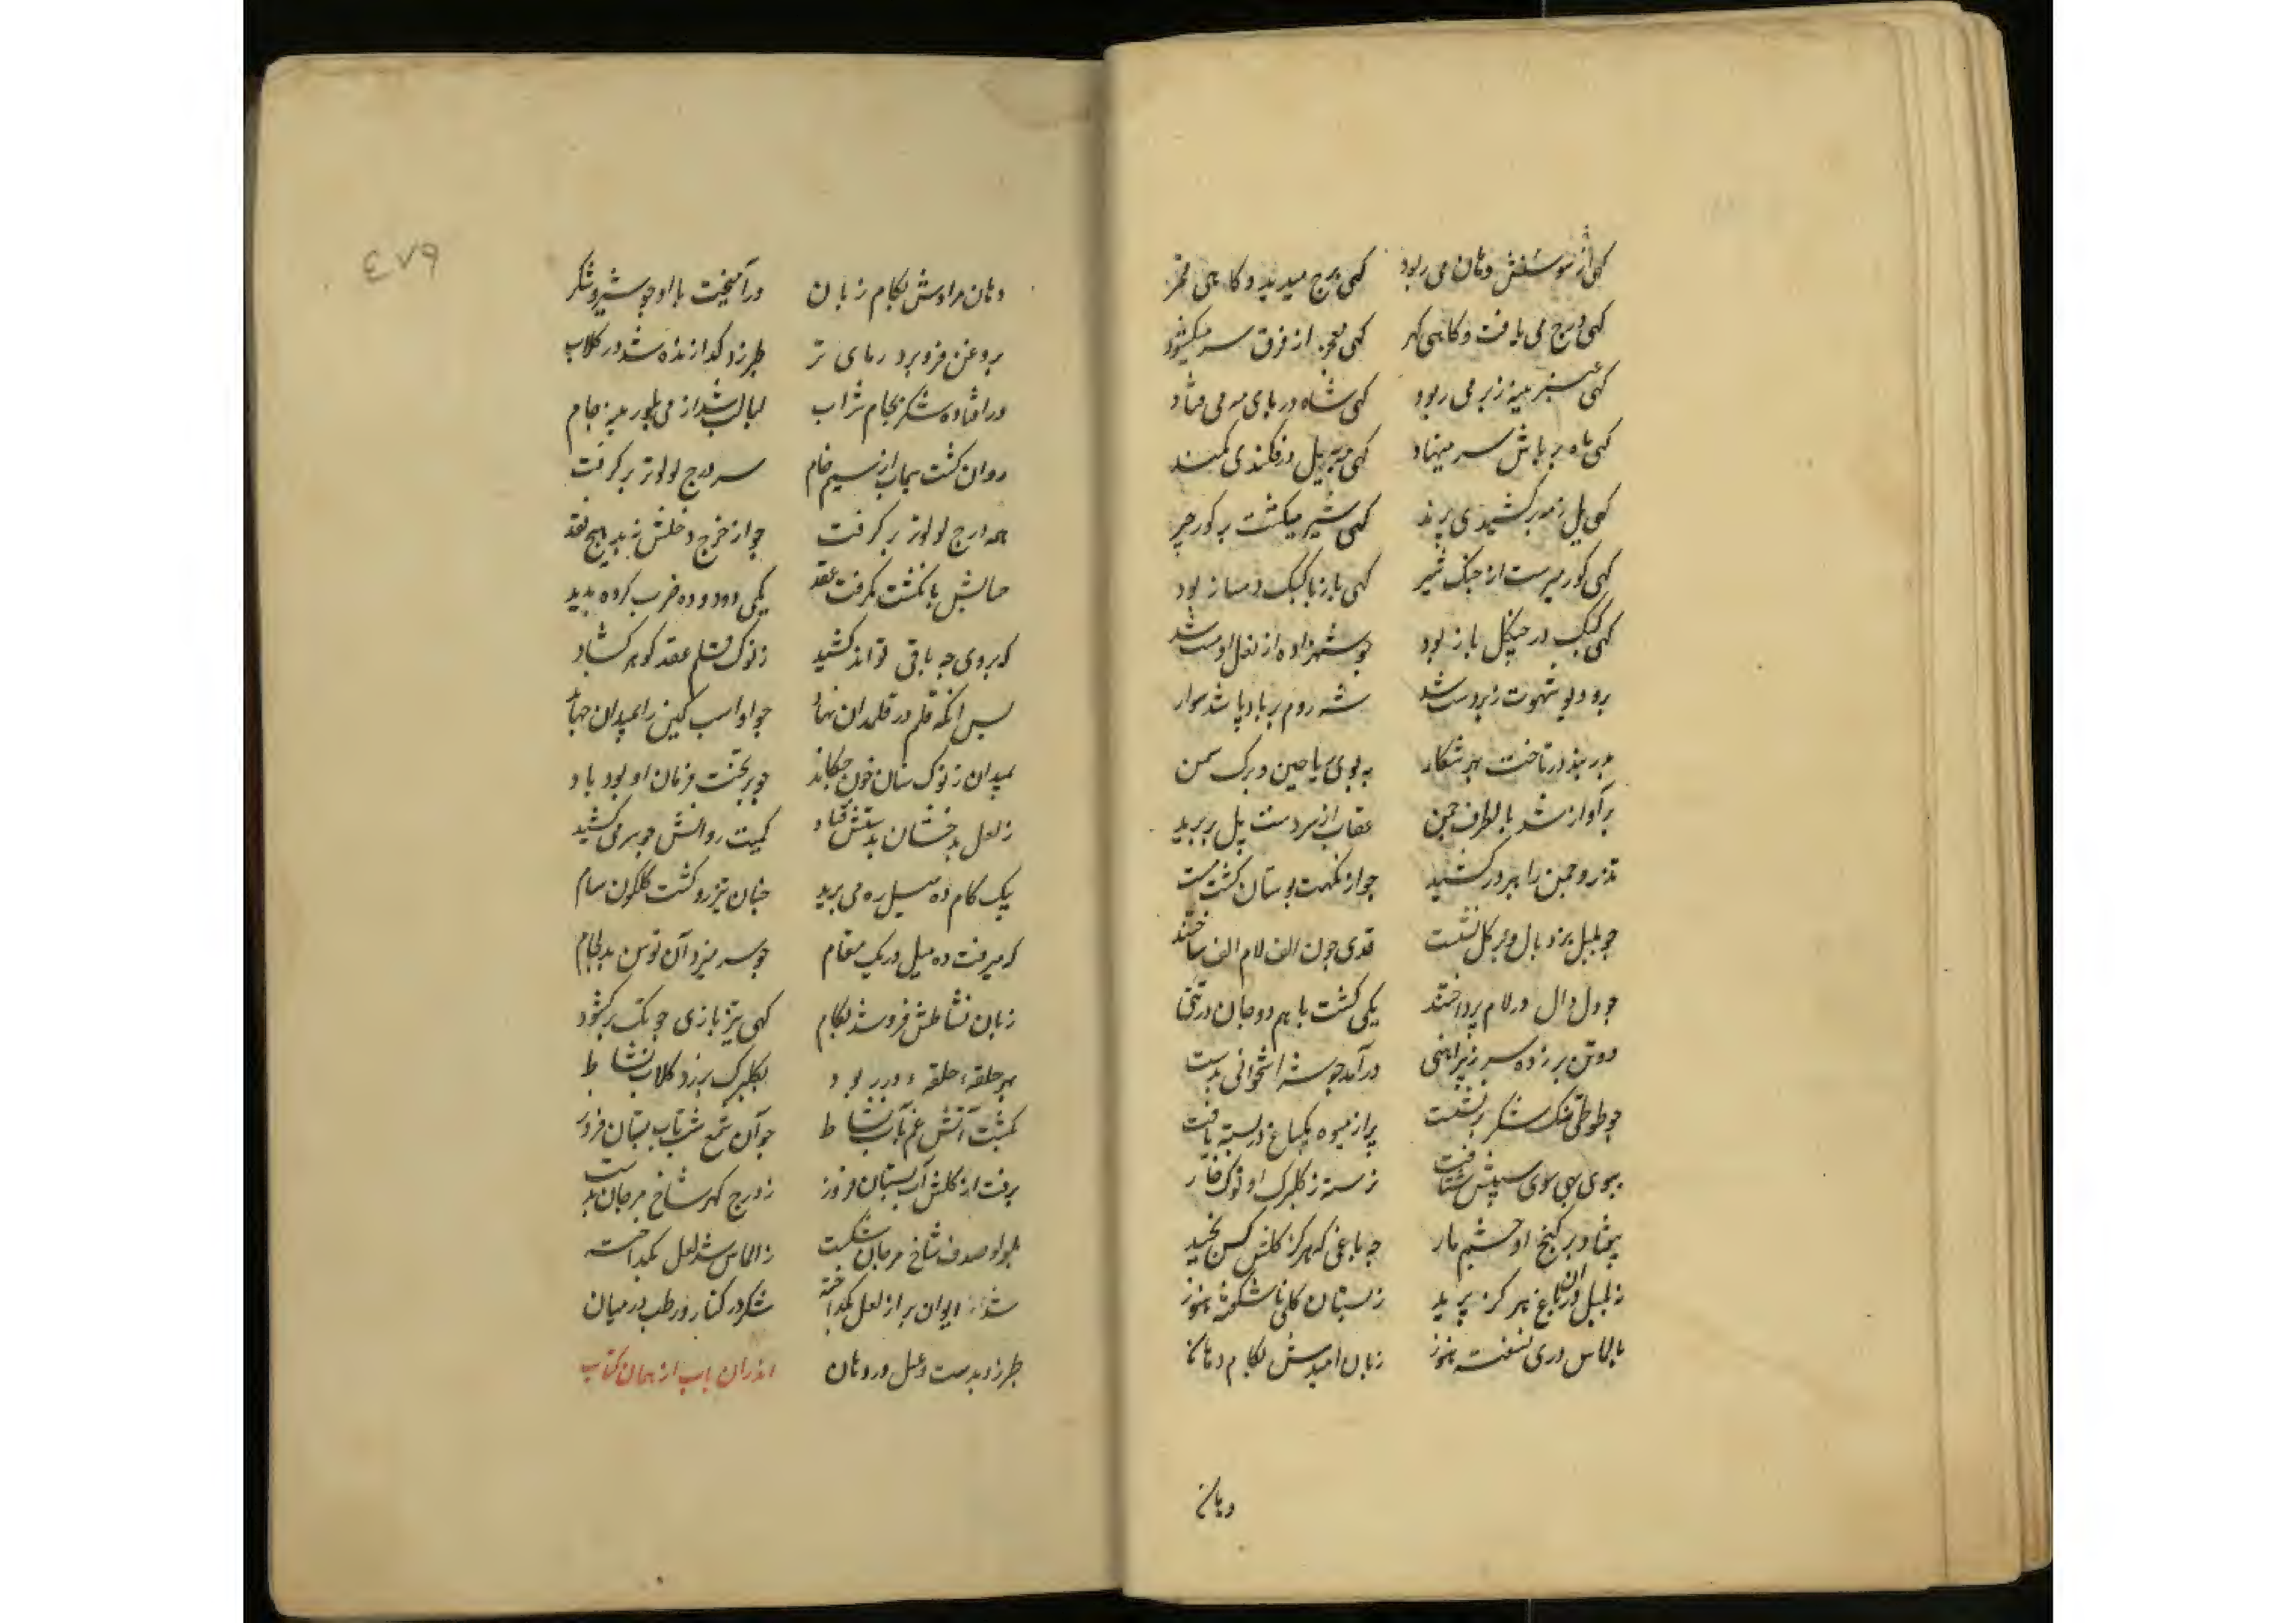 کهی از سوسنش دهان می ربود کهی درج میدید و کاهی قمر
کهی درج می یافت و کاهی کهر کهی معجر از فرق سر میکشود
کهی عنبر مینه زبر می ربود کهی شاه در پای مه می فتاد
کهی ماه بر پاش سر مینهاد کهی بر پیل درفکندی کمند
کهی پل زمه برکشیدی پرند کهی شیر میکشت بر کور چیر
کهی کور میرست از جنک شیر کهی باز با کبک دمساز بود
کهی کبک در جنکل باز بود جو شهزاده از لعل او مست شد
برو دیو شهوت زبردست شد شه روم بر بادپا شد سوار
بدربند در تاخت بهر شکار به بوی ریاحین و برک سمن
برآواز شد با طرف چمن عقاب از سر دست پل بر پرید
تذرو چمن را ببر درکشید جو از نکهت بوستان کشت مست
جو بلبل بزد بال و بر کل نشست قدی چون الف لام الف ساختند
جو دل دال در لام پرداختند یکی کشت با هم دو جان در تنی
دو تن بر زده سر ز پیراهنی درآمد جو شه استخوانی بدست
جو طوطی تنک شکر برنشست پر از میوه یکباغ در بسته یافت
ببوی بهی سوی سیبش شتافت نرسته ز کلبرک او نوک خار
نیفتاد بر کنج او چشم مار چه باغی که هرکز کلش کس نچید
ز بلبل در ان باغ هرکز پرید ز بستان کلی ناشکفته هنوز
بالماس دری نسفته هنوز زبان امیدش بکام دهان
دهان
٤٧٩
دهان مرادش بکام زبان درآمیخت با او جو شیر و شکر
بروغن فرو برد رمای تر طبرزد کدازنده شد در کلاب
درافتاده شکر بجام شراب لبالب شد از می بلورینه جام
روان کشت سیماب از سیم خام سر درج لولو تر برکرفت
همه درج لولو تر برکرفت جو از خرج دخلش ندید هیچ نقد
حسابش بانکشت بکرفت عقد یکی دو دو ده ضرب کرده بدید
که بروی چه باقی تواند کشید ز نوک قلم عقد کوهر کشاد
پس انکه قلم در قلمدان نهاد جو او اسب کین را بمیدان جهاند
بمیدان ز نوک سنان خون چکاند جو بر تخت فرمان او بود باد
ز لعل بدخشان بدستش فتاد کمیت روانش جو سر می کشید
بیک کام ده میل ره می برید چنان تیزرو کشت کلکون سام
که میرفت ده میل در یک مقام جو سر میزد آن توسن بدلجام
زبان نشاطش فرو شد بکام کهی نیزه بازی جو تک برکشود
بهر حلقه حلقه در ربود بکلبرک بر زد کلاب نشاط
بکشت آتش غم بآب نشاط جو آن شمع شب تاب بستان فروز
برفت از کلش آب بستان فروز ز درج کهر شاخ مرجان بدست
بلولو صدف شاخ مرجان شکست ز الماس شد لعل بکداخته
شد ایوان پر از لعل بکداخته شکر در کنار و رطب در میان
طبرزد بدست و عسل در دهان اندران باب از همان کتاب